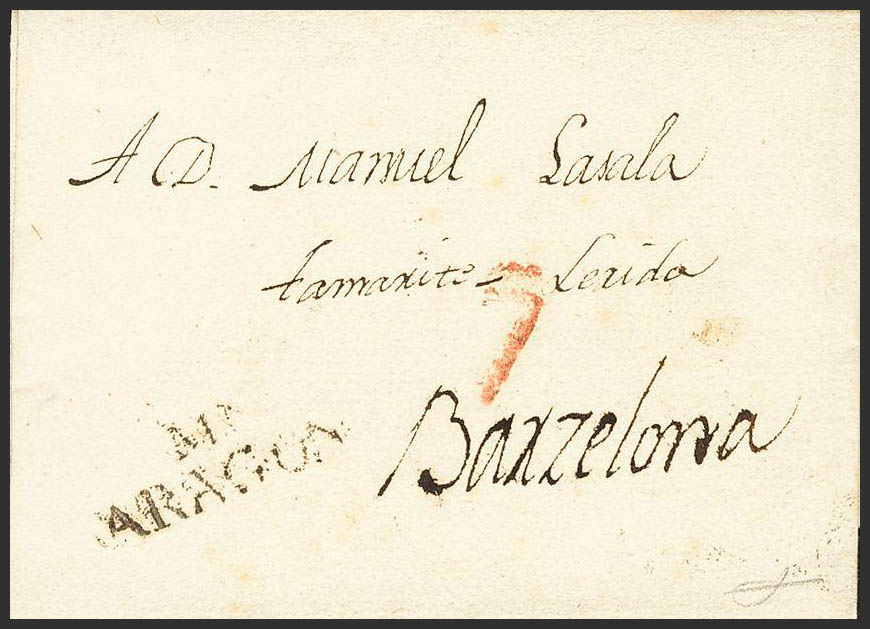 A D. Manuel Lasala
tamarite - Lerida
7
Barzelona
ARAGON